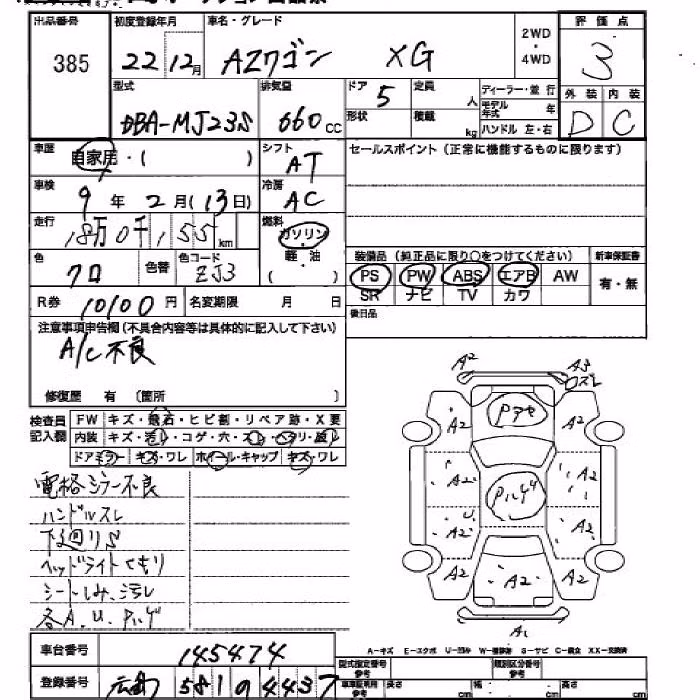 出品番号 初度登録年月 車名・グレード 2WD・4WD 評価点
385 22 12月 AZワゴン XG 3
型式 排気量 ドア 5 定員 人 ディーラー・並行 外装 内装
DBA-MJ23S 660cc 形状 積載 kg モデル年式 年 D C
ハンドル 左・右
車歴 自家用・( ) シフト AT セールスポイント(正常に機能するものに限ります)
車検 9年2月(13日) 冷房 AC
走行 18万0千155km 燃料 ガソリン・軽・油
装備品(純正品に限り○をつけてください) 新車保証書
色 クロ 色替 色コード ZJ3 PS PW ABS エアB AW 有・無
SR ナビ TV カワ
R券 10100円 名変期限 月 日
後日品
注意事項申告欄(不具合内容等は具体的に記入して下さい)
A/C不良
修復歴 有 〔箇所 〕
検査員記入欄 FW キズ・飛石・ヒビ割・リペア跡・X要
内装 キズ・汚レ・コゲ・穴・スレ・ヘタリ・破レ
ドアミラー キズ・ワレ ホイール・キャップ キズ・ワレ
電格ミラー不良
ハンドルスレ
下廻りS
ヘッドライトくもり
シートしみ、汚レ
各A.U.Pハゲ
A2 A3
ロズレ
Pアセ
A2 A2
Pハゲ
A2 A2
U
A2 A2
A2 A2 A2
A1
A-キズ E-エクボ U-凹み W-補修跡 S-サビ C-腐食 XX-交換済
車台番号 145474
型式指定番号 参考 類別区分番号 参考
登録番号 広島 581 う 4437
車車証明用 参考 長さ cm 幅 cm 高さ cm